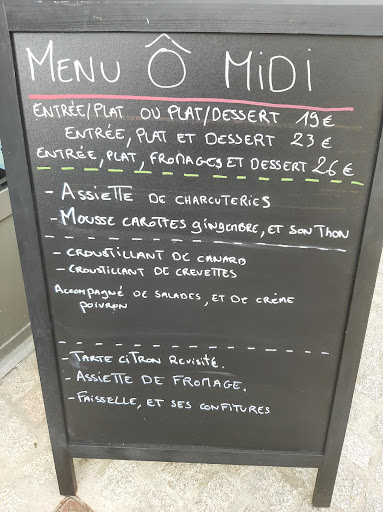 MENU Ô MIDI
ENTRÉE/PLAT OU PLAT/DESSERT 19€
ENTRÉE, PLAT ET DESSERT 23€
ENTRÉE, PLAT, FROMAGES ET DESSERT 26€
- ASSIETTE DE CHARCUTERIES
- MOUSSE CAROTTES GINGEMBRE, ET SON THON
- CROUSTILLANT DE CANARD
- CROUSTILLANT DE CREVETTES
ACCOMPAGNÉ DE SALADES, ET DE CRÈME
POIVRON
- TARTE CITRON REVISITÉ.
- ASSIETTE DE FROMAGE.
- FAISSELLE, ET SES CONFITURES